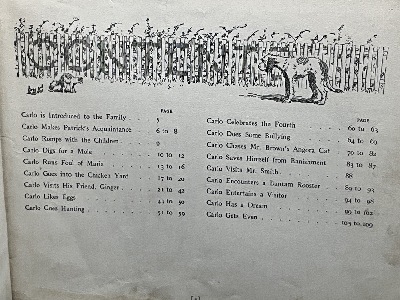 CONTENTS
PAGE
Carlo is Introduced to the Family . . 5
Carlo Makes Patrick's Acquaintance 6 to 8
Carlo Romps with the Children . . 9
Carlo Digs for a Mole . . . . 10 to 12
Carlo Runs Foul of Maria . . . 13 to 16
Carlo Goes into the Chicken Yard . 17 to 20
Carlo Visits His Friend, Ginger . . 21 to 42
Carlo Likes Eggs . . . . . 43 to 50
Carlo Goes Hunting . . . . . 51 to 59
PAGE
Carlo Celebrates the Fourth . . . 60 to 63
Carlo Does Some Bullying . . . 64 to 69
Carlo Chases Mr. Brown's Angora Cat 70 to 82
Carlo Saves Himself from Banishment 83 to 87
Carlo Visits Mr. Smith . . . . 88
Carlo Encounters a Bantam Rooster 89 to 93
Carlo Entertains a Visitor . . . 94 to 98
Carlo Has a Dream . . . . . 99 to 102
Carlo Gets Even . . . . . . 103 to 109